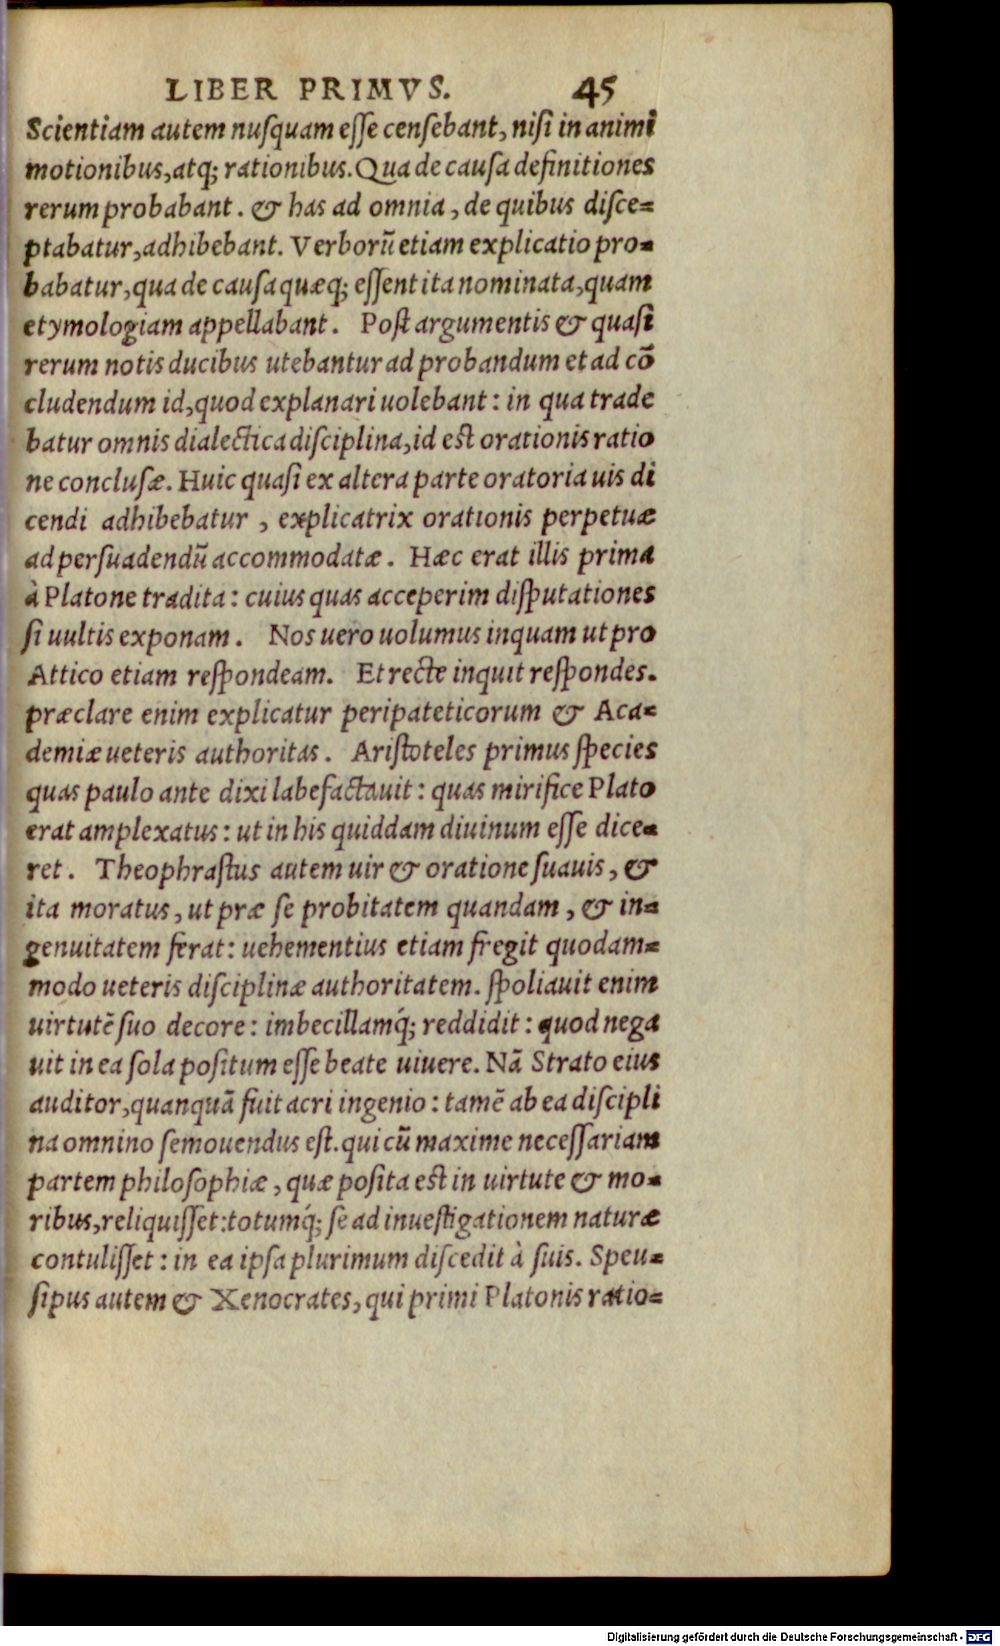 LIBER PRIMVS. 45
Scientiam autem nuſquam eſſe cenſebant, niſi in animi
motionibus, atq; rationibus. Qua de cauſa definitiones
rerum probabant. & has ad omnia, de quibus diſce-
ptabatur, adhibebant. Verborũ etiam explicatio pro-
babatur, qua de cauſa quæq; eſſent ita nominata, quam
etymologiam appellabant. Poſt argumentis & quaſi
rerum notis ducibus utebantur ad probandum et ad cõ
cludendum id, quod explanari uolebant: in qua trade
batur omnis dialectica diſciplina, id est orationis ratio
ne concluſæ. Huic quaſi ex altera parte oratoria uis di
cendi adhibebatur, explicatrix orationis perpetuæ
ad perſuadendũ accommodatæ. Hæc erat illis prima
à Platone tradita: cuius quas acceperim diſputationes
ſi uultis exponam. Nos uero uolumus inquam ut pro
Attico etiam reſpondeam. Et recte inquit reſpondes.
præclare enim explicatur peripateticorum & Aca-
demiæ ueteris authoritas. Ariſtoteles primus ſpecies
quas paulo ante dixi labefactauit: quas mirifice Plato
erat amplexatus: ut in his quiddam diuinum eſſe dice-
ret. Theophraſtus autem uir & oratione ſuauis, &
ita moratus, ut præ ſe probitatem quandam, & in-
genuitatem ferat: uehementius etiam fregit quodam-
modo ueteris diſciplinæ authoritatem. ſpoliauit enim
uirtutẽ ſuo decore: imbecillamq́; reddidit: quod nega
uit in ea ſola poſitum eſſe beate uiuere. Nã Strato eius
auditor, quanquã fuit acri ingenio: tamẽ ab ea diſcipli
na omnino ſemouendus eſt. qui cũ maxime neceſſariam
partem philoſophiæ, quæ poſita est in uirtute & mo-
ribus, reliquiſſet: totumq́; ſe ad inueſtigationem naturæ
contuliſſet: in ea ipſa plurimum diſcedit à ſuis. Speu-
ſipus autem & Xenocrates, qui primi Platonis ratio-
Digitalisierung gefördert durch die Deutsche Forschungsgemeinschaft - DFG